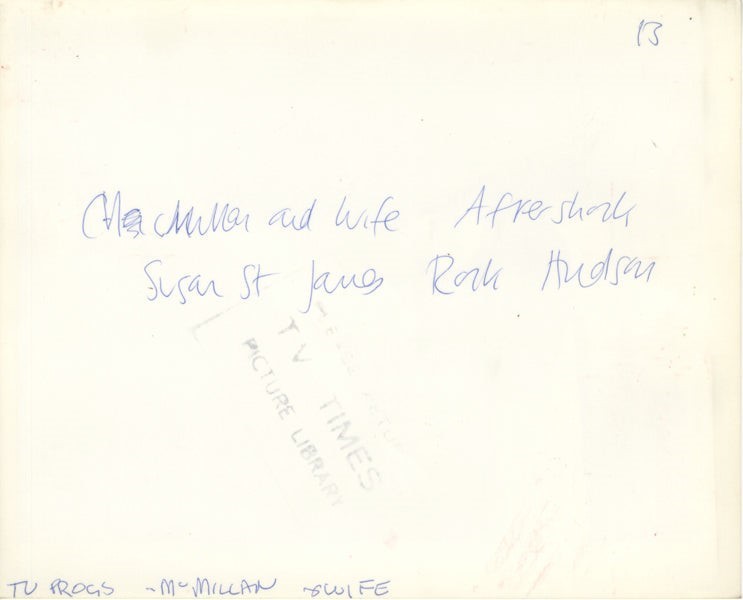 13
MacMillan and Wife Aftershock
Susan St James Rock Hudson
PLEASE RETURN
TV TIMES
PICTURE LIBRARY
TV PROGS - McMILLAN & WIFE